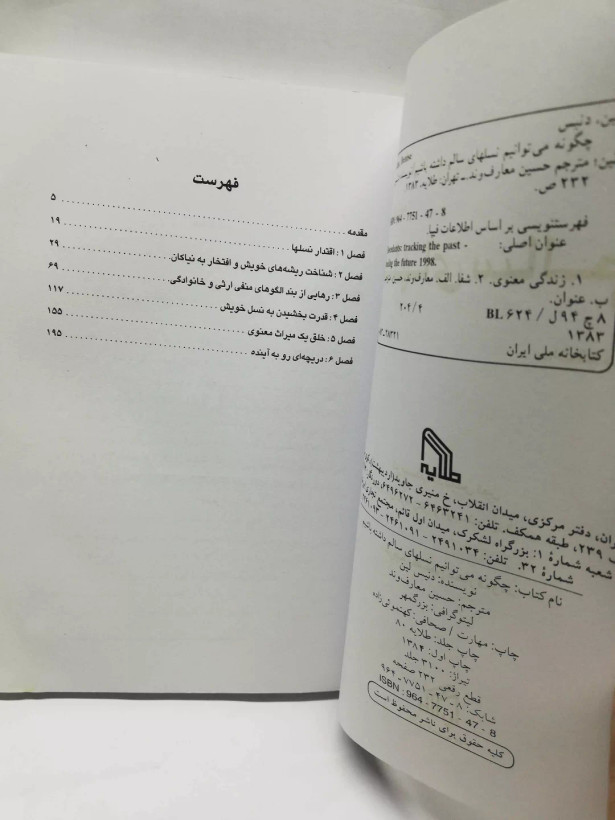 فهرست
مقدمه ۵
فصل ۱: اقتدار نسلها ۱۹
فصل ۲: شناخت ریشه‌های خویش و افتخار به نیاکان. ۲۹
فصل ۳: رهایی از بند الگوهای منفی ارثی و خانوادگی. ۶۹
فصل ۴: قدرت بخشیدن به نسل خویش ۱۱۷
فصل ۵: خلق یک میراث معنوی ۱۵۵
فصل ۶: دریچه‌ای رو به آینده ۱۹۵
لین، دنیس
چگونه می‌توانیم نسلهای سالم داشته باشیم
لین؛ مترجم حسین معارف‌وند. ـ تهران: طلایه، ۱۳۸۳
۲۳۲ ص.
964 - 7751 - 47 - 8
فهرستنویسی بر اساس اطلاعات فیپا.
عنوان اصلی: tracking the past -
the future 1998.
۱. زندگی معنوی. ۲. شفا. الف. معارف‌وند، حسین
ب. عنوان.
۲۰۴/۴ BL ۶۲۴ / ل ۹۴ چ ۸
۱۳۸۳
کتابخانه ملی ایران
طلایه
دفتر مرکزی، میدان انقلاب، خ منیری جاوید
۲۳۹، طبقه همکف. تلفن: ۶۴۶۳۲۴۱ - ۶۴۹۶۲۷۲
شعبه شمارهٔ ۱: بزرگراه لشکرک، میدان اول قائم، مجتمع تجاری
شمارهٔ ۳۲. تلفن: ۲۴۹۱۰۳۴ - ۲۴۶۱۰۹۱
نام کتاب: چگونه می‌توانیم نسلهای سالم داشته باشیم
نویسنده: دنیس لین
مترجم: حسین معارف‌وند
لیتوگرافی: بزرگمهر
چاپ: مهارت / صحافی: کهنمویی‌زاده
چاپ جلد: طلایه ۸۰
چاپ اول: ۱۳۸۴
تیراژ: ۳۱۰۰ جلد
قطع رقعی ۲۳۲ صفحه
شابک: ۸ - ۴۷ - ۷۷۵۱ - ۹۶۴
ISBN: 964 - 7751 - 47 - 8
کلیه حقوق برای ناشر محفوظ است